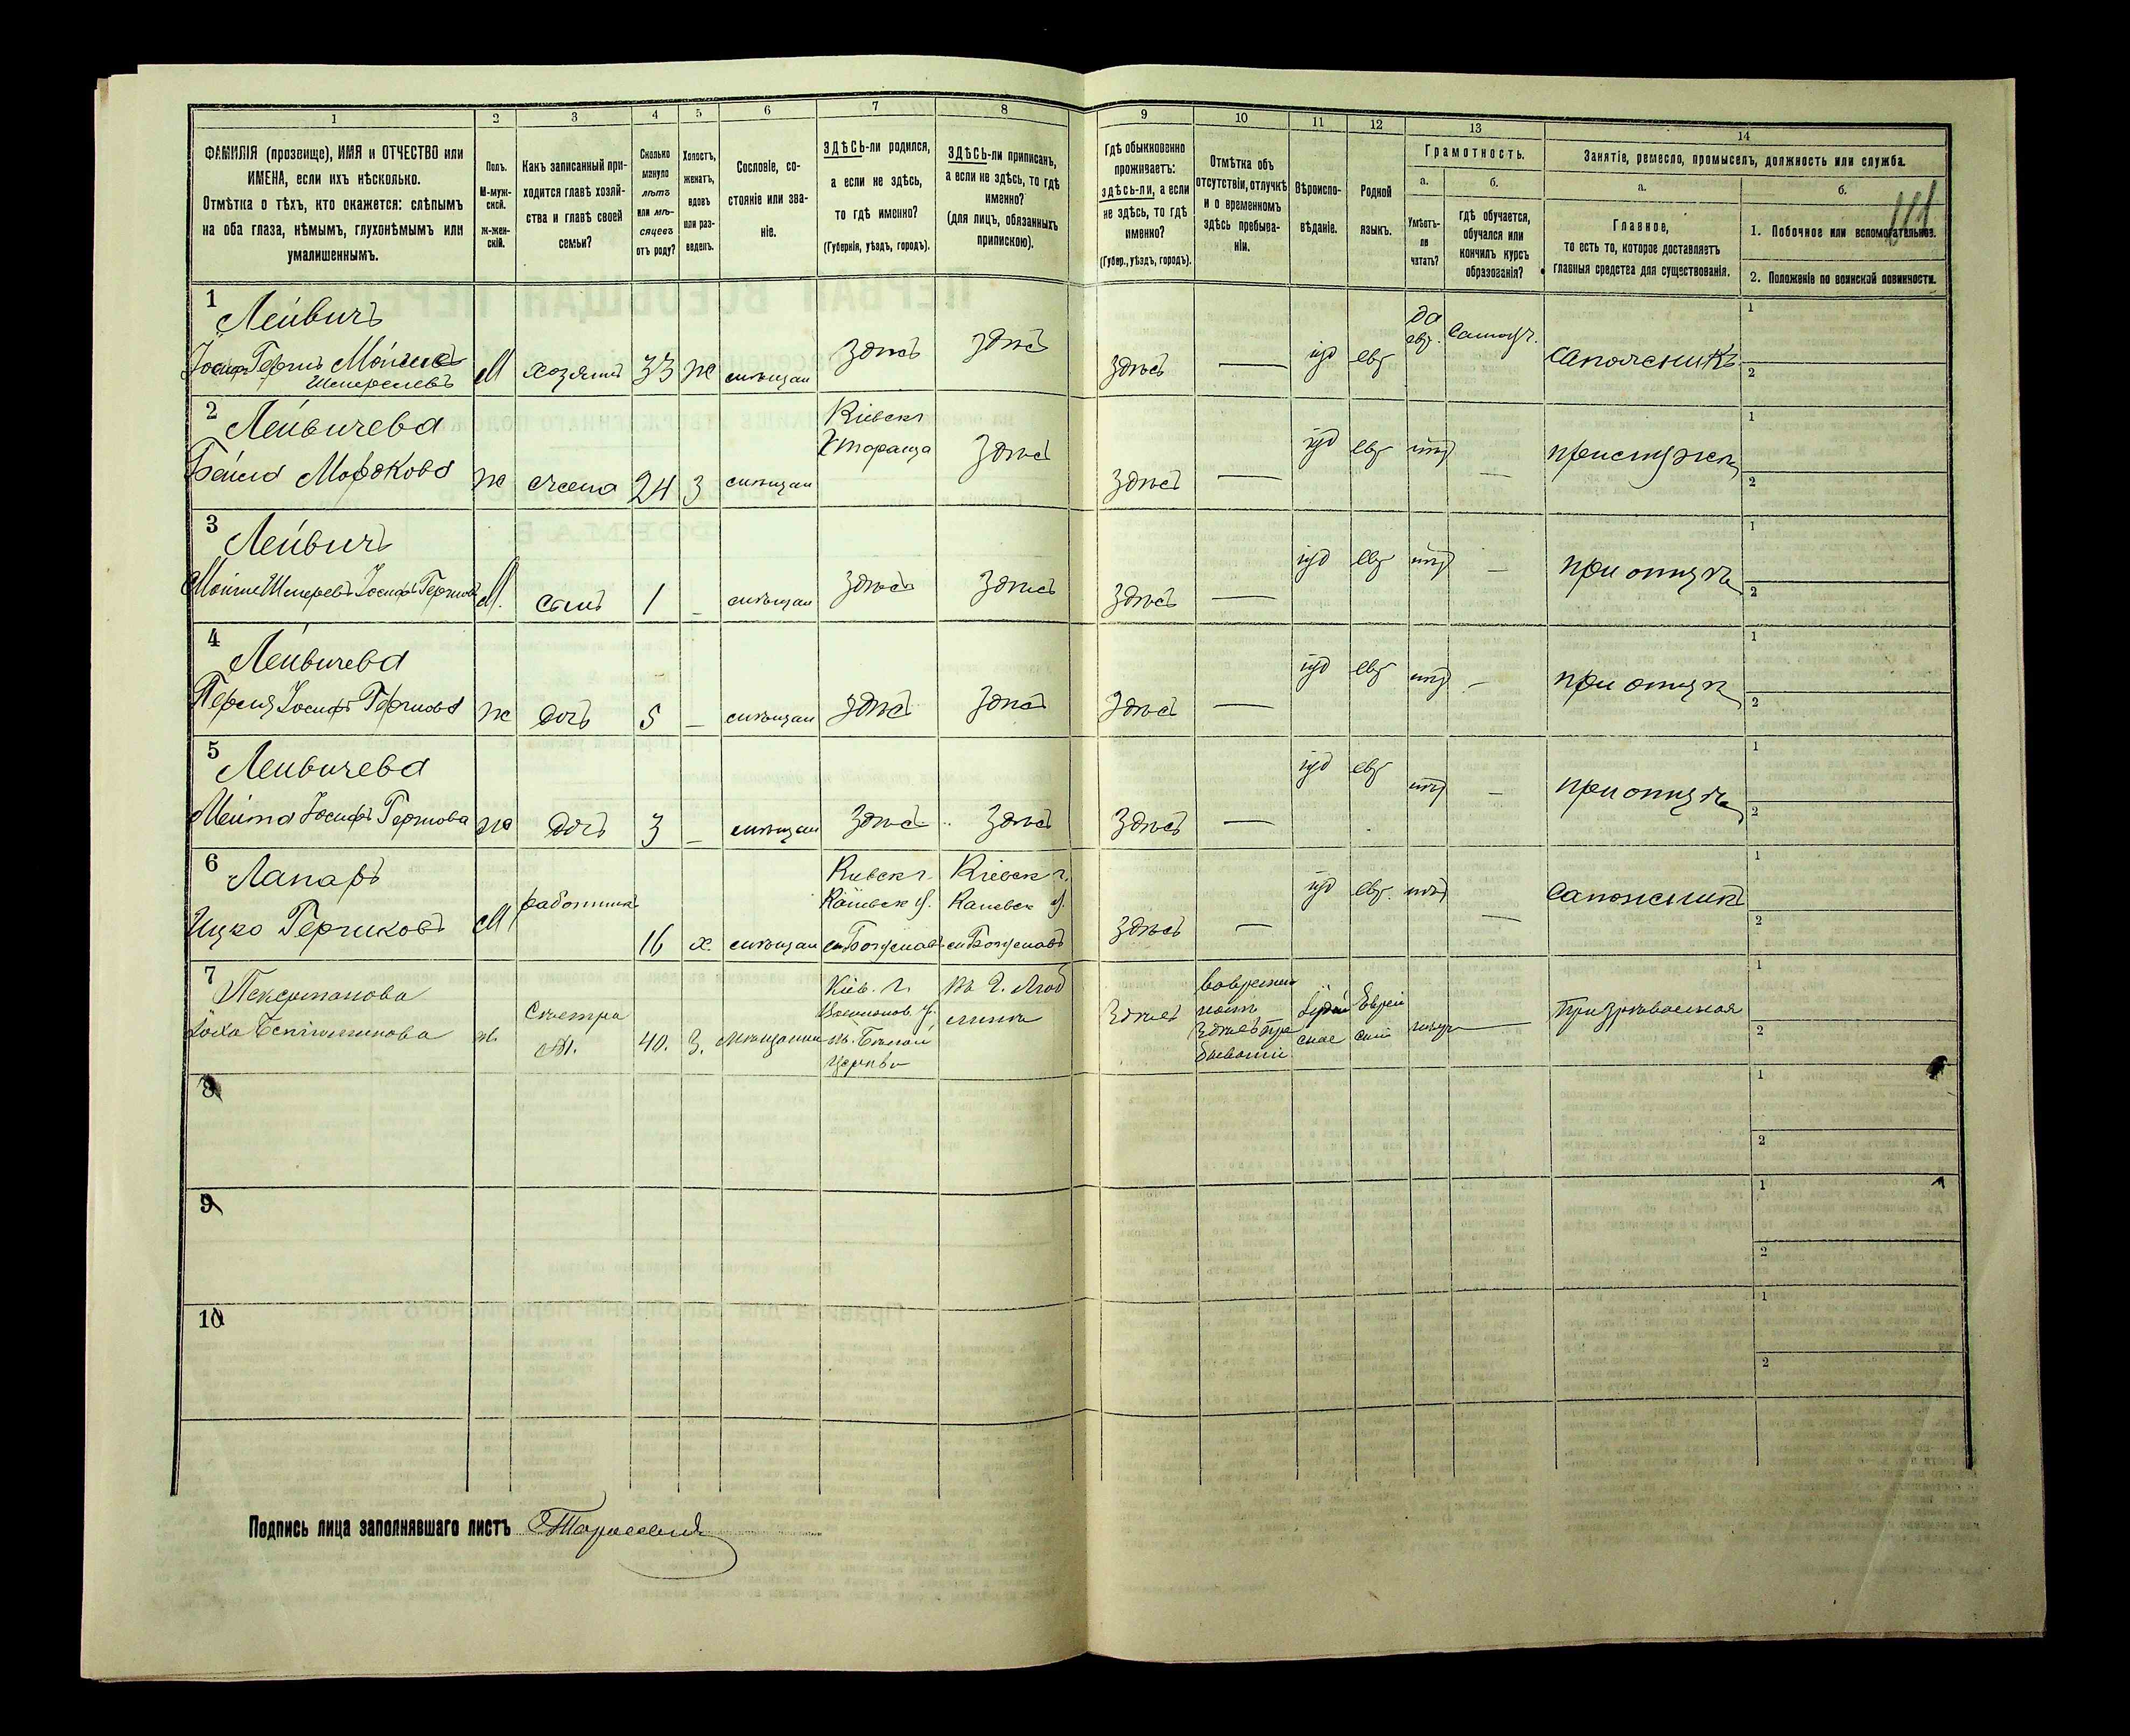 1 2 3 4 5 6 7 8 9 10 11 12 13 14
ФАМИЛІЯ (прозвище), ИМЯ и ОТЧЕСТВО или
ИМЕНА, если ихъ нѣсколько.
Отмѣтка о тѣхъ, кто окажется: слѣпымъ
на оба глаза, нѣмымъ, глухонѣмымъ или
умалишеннымъ.
Полъ.
М-муж-
ской.
Ж-жен-
скій.
Какъ записанный при-
ходится главѣ хозяй-
ства и главѣ своей
семьи?
Сколько
минуло
лѣтъ
или мѣ-
сяцевъ
отъ роду?
Холостъ,
женатъ,
вдовъ
или раз-
веденъ.
Сословіе, со-
стояніе или зва-
ніе.
ЗДѢСЬ-ли родился,
а если не здѣсь,
то гдѣ именно?
(Губернія, уѣздъ, городъ).
ЗДѢСЬ-ли приписанъ,
а если не здѣсь, то гдѣ
именно?
(для лицъ, обязанныхъ
припискою).
Гдѣ обыкновенно
проживаетъ:
здѣсь-ли, а если
не здѣсь, то гдѣ
именно?
(Губер., уѣздъ, городъ).
Отмѣтка объ
отсутствіи, отлучкѣ
и о временномъ
здѣсь пребыва-
ніи.
Вѣроиспо-
вѣданіе.
Родной
языкъ.
Грамотность.
а.
Умѣетъ-
ли
читать?
б.
Гдѣ обучается,
обучался или
кончилъ курсъ
образованія?
Занятіе, ремесло, промыселъ, должность или служба.
а.
Главное,
то есть то, которое доставляетъ
главныя средства для существованія.
б.
1. Побочное или вспомогательное.
2. Положеніе по воинской повинности.
1
Лейвичъ
М хозяинъ 33 ж мѣщан здѣсь здѣсь здѣсь — іуд евр да евр. самоуч. сапожникъ
1
2
2
Лейвичева
Бейла Мордкова ж жена 24 З мѣщан Кіевск г Тараща здѣсь здѣсь — іуд евр нѣт — при мужѣ
1
2
3
Лейвичъ
М. сынъ 1 — мѣщан здѣсь здѣсь здѣсь — іуд евр нѣт — при отцѣ
1
2
4
Лейвичева
ж дочь 5 — мѣщан здѣсь здѣсь здѣсь — іуд евр нѣт — при отцѣ
1
2
5
Лейвичева
ж дочь 3 — мѣщан здѣсь здѣсь здѣсь — іуд евр нѣт — при отцѣ
1
2
6
Лапаръ
Ицко Гершковъ М работникъ 16 х. мѣщан Кіевск г. Каневск у. м Богуслав Кіевск г. Каневск у. м Богуславъ здѣсь — іуд евр. нѣт — сапожникъ
1
2
7
ж. Сестра 40. З. Кіев. г. здѣсь Іудей ское Еврей скій
1
2
8
1
2
9
1
2
10
1
2
Подпись лица заполнявшаго листъ